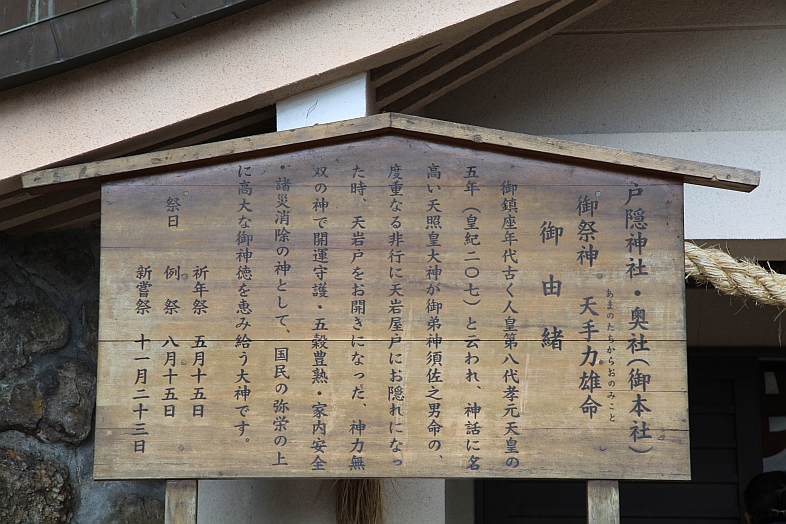 戸隠神社・奥社(御本社)
御祭神 天手力雄命
あまのたちからおのみこと
御由緒
御鎮座年代古く人皇第八代孝元天皇の
五年(皇紀二〇七)と云われ、神話に名
高い天照皇大神が御弟神須佐之男命の、
度重なる非行に天岩屋戸にお隠れになっ
た時、天岩戸をお開きになった、神力無
双の神で開運守護・五穀豊熟・家内安全
・諸災消除の神として、国民の弥栄の上
に高大な御神徳を恵み給う大神です。
祈年祭 五月十五日
祭日 例祭 八月十五日
新嘗祭 十一月二十三日